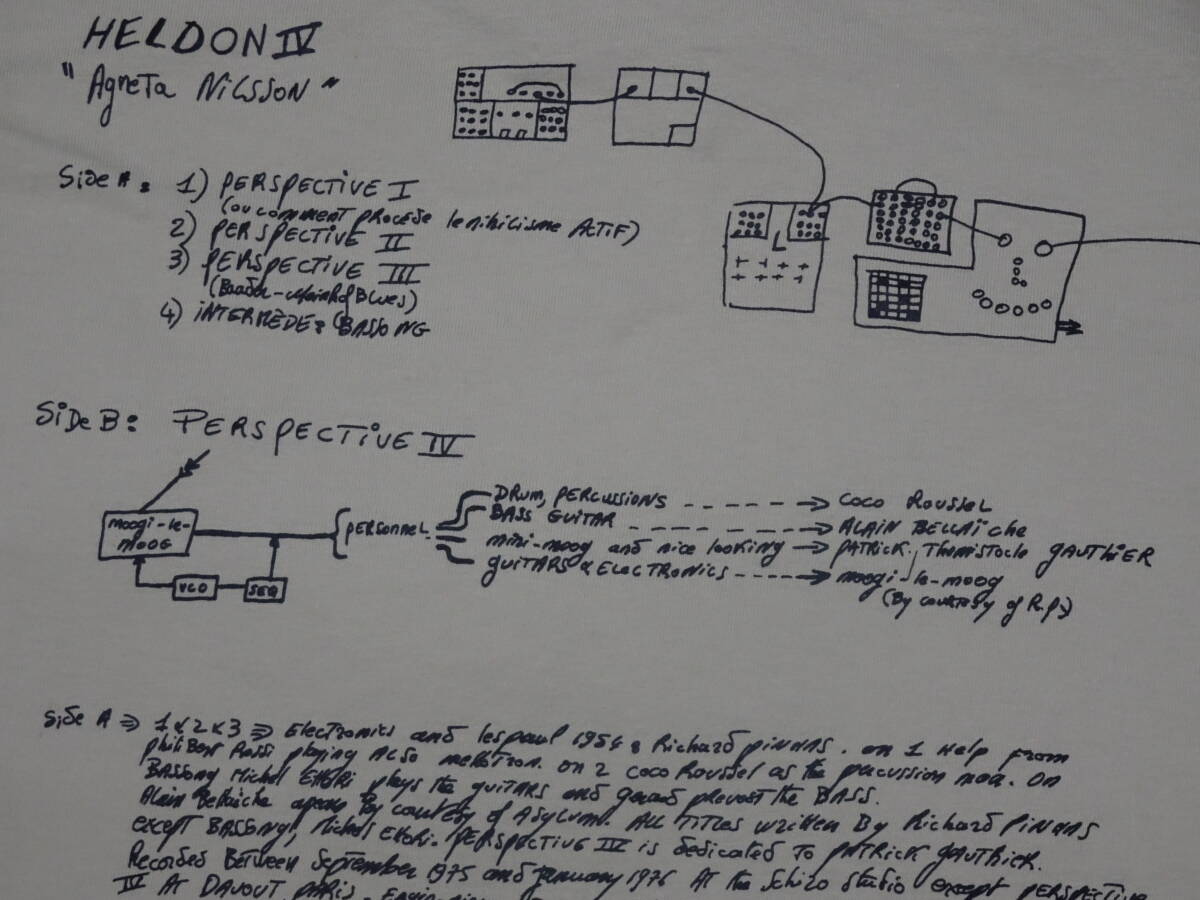 HELDON IV
"Agneta Nilsson"
Side A: 1) PERSPECTIVE I
(ou comment procede le nihilisme Actif)
2) PERSPECTIVE II
3) PERSPECTIVE III
(Baader-Meinhof Blues)
4) INTERMEDE: BASSONG
Side B: PERSPECTIVE IV
moogi-le-moog
VCO
SEQ
PERSONNEL
DRUM, PERCUSSIONS -----> COCO ROUSSEL
BASS GUITAR -----> ALAIN BELLAiche
mini-moog and nice looking -> PATRICK, Themistocle GAUTHIER
guitars & Electronics ----> moogi-le-moog
(By courtesy of R.p.)
Side A => 1 & 2 & 3 => Electronics and lespaul 1954: Richard PINHAS. on 1 Help from
philibert Rossi playing ALSO mellotron. on 2 coco Roussel as the percussion man. On
BASSong Michel Ettori plays the guitars and gerard prevost the BASS.
Alain Bellaiche appears By courtesy of Asylum. ALL TITLES written By Richard PINHAS
except BASSong, Michel Ettori. PERSPECTIVE IV is dedicated to PATRICK GAUTHIER.
Recorded Between September 1975 and january 1976 At the Schizo Studio except PERSPECTIVE
IV AT DAVOUT, PARIS.